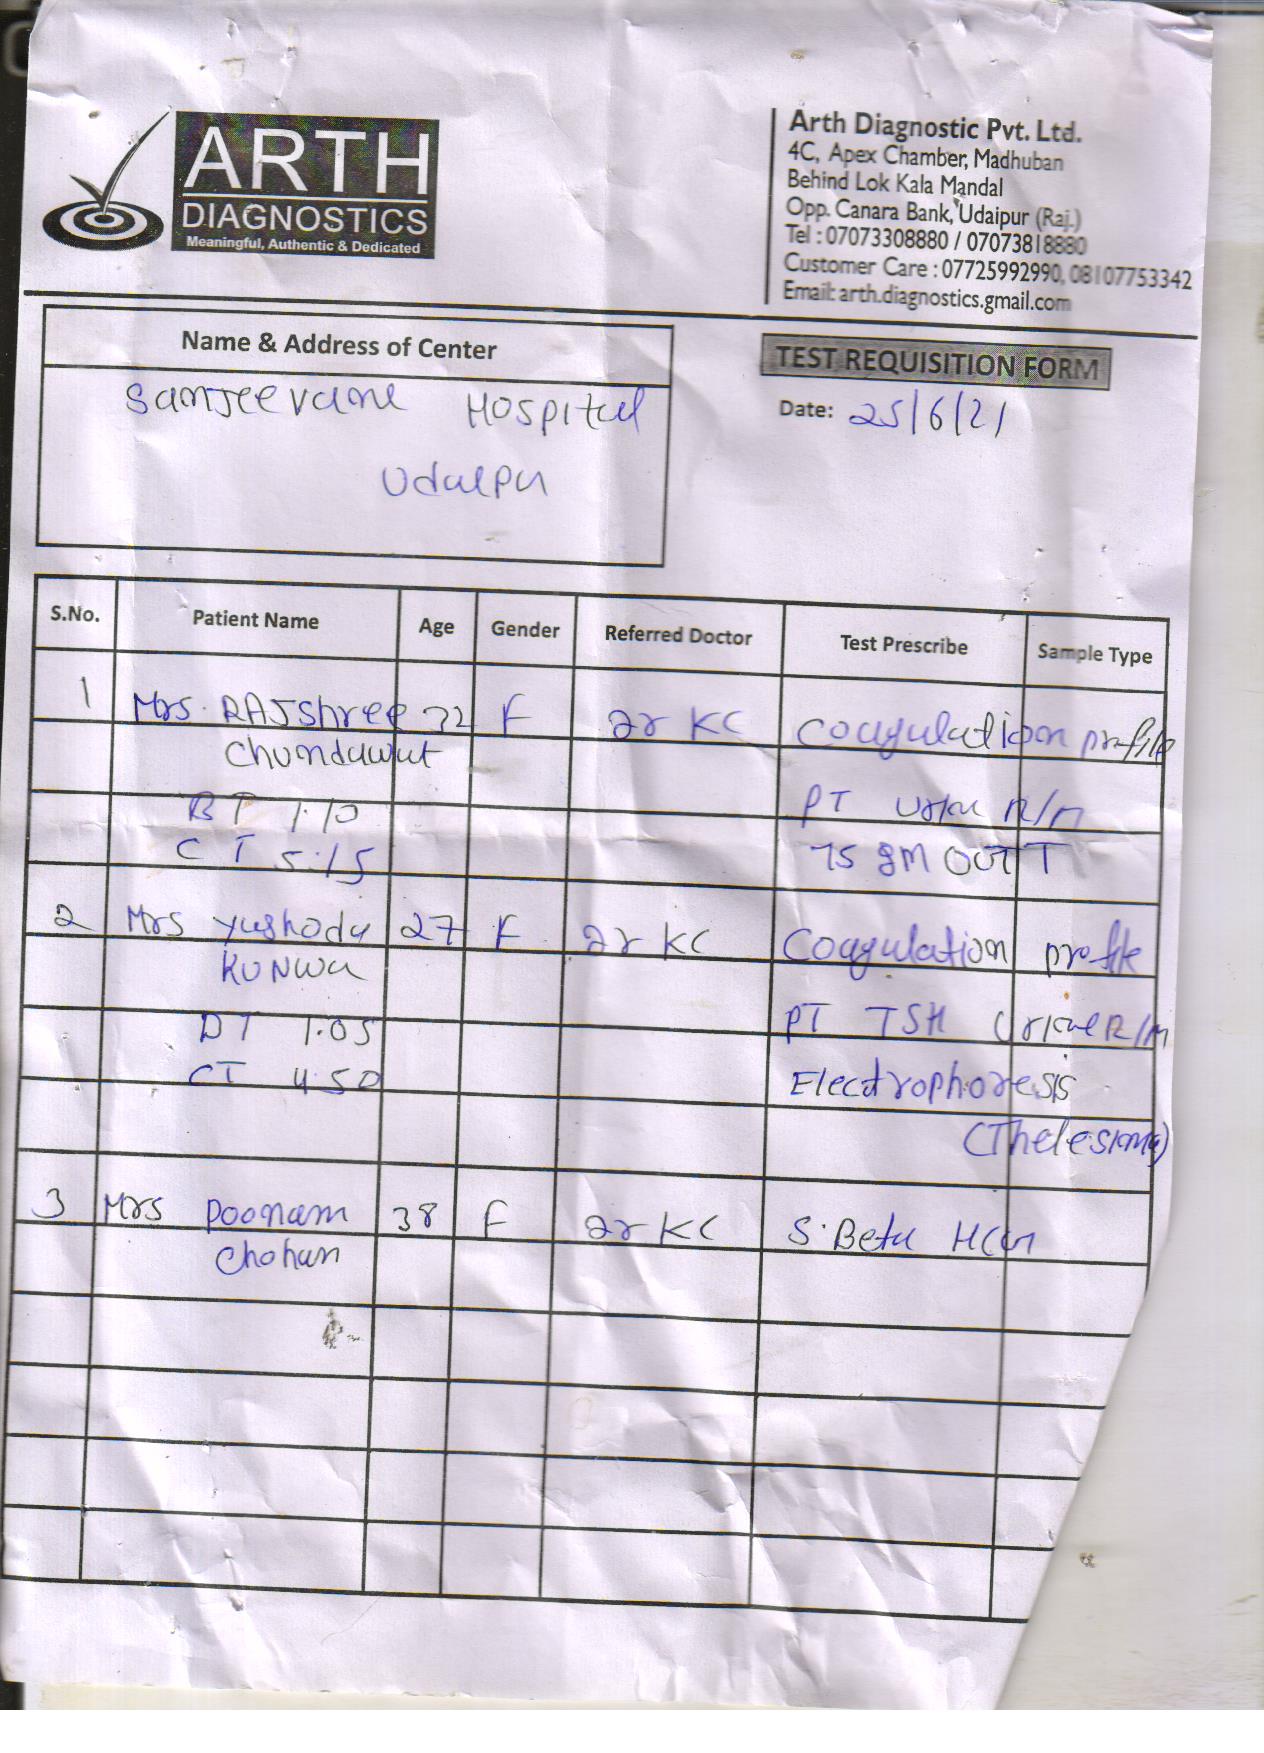 ARTH
DIAGNOSTICS
Meaningful, Authentic & Dedicated
Arth Diagnostic Pvt. Ltd.
4C, Apex Chamber, Madhuban
Behind Lok Kala Mandal
Opp. Canara Bank, Udaipur (Raj.)
Tel : 07073308880 / 07073818880
Customer Care : 07725992990, 08107753342
Email: arth.diagnostics.gmail.com
Name & Address of Center
Sanjeevani Hospital
Udaipur
TEST REQUISITION FORM
Date: 25/6/21
S.No. Patient Name Age Gender Referred Doctor Test Prescribe Sample Type
1 Mrs. RAJShree 32 F Dr KC Coagulation profile
Chundawut
BT 1.10 PT Urine R/M
CT 5:15 75 gM OGTT
2 Mrs Yushodu 27 F Dr KC Coagulation profile
KUNWU
BT 1.05 PT TSH Urine R/M
CT 4.50 Electrophoresis
3 Mrs Poonam 38 F Dr KC S. Beta HCG
Chohan